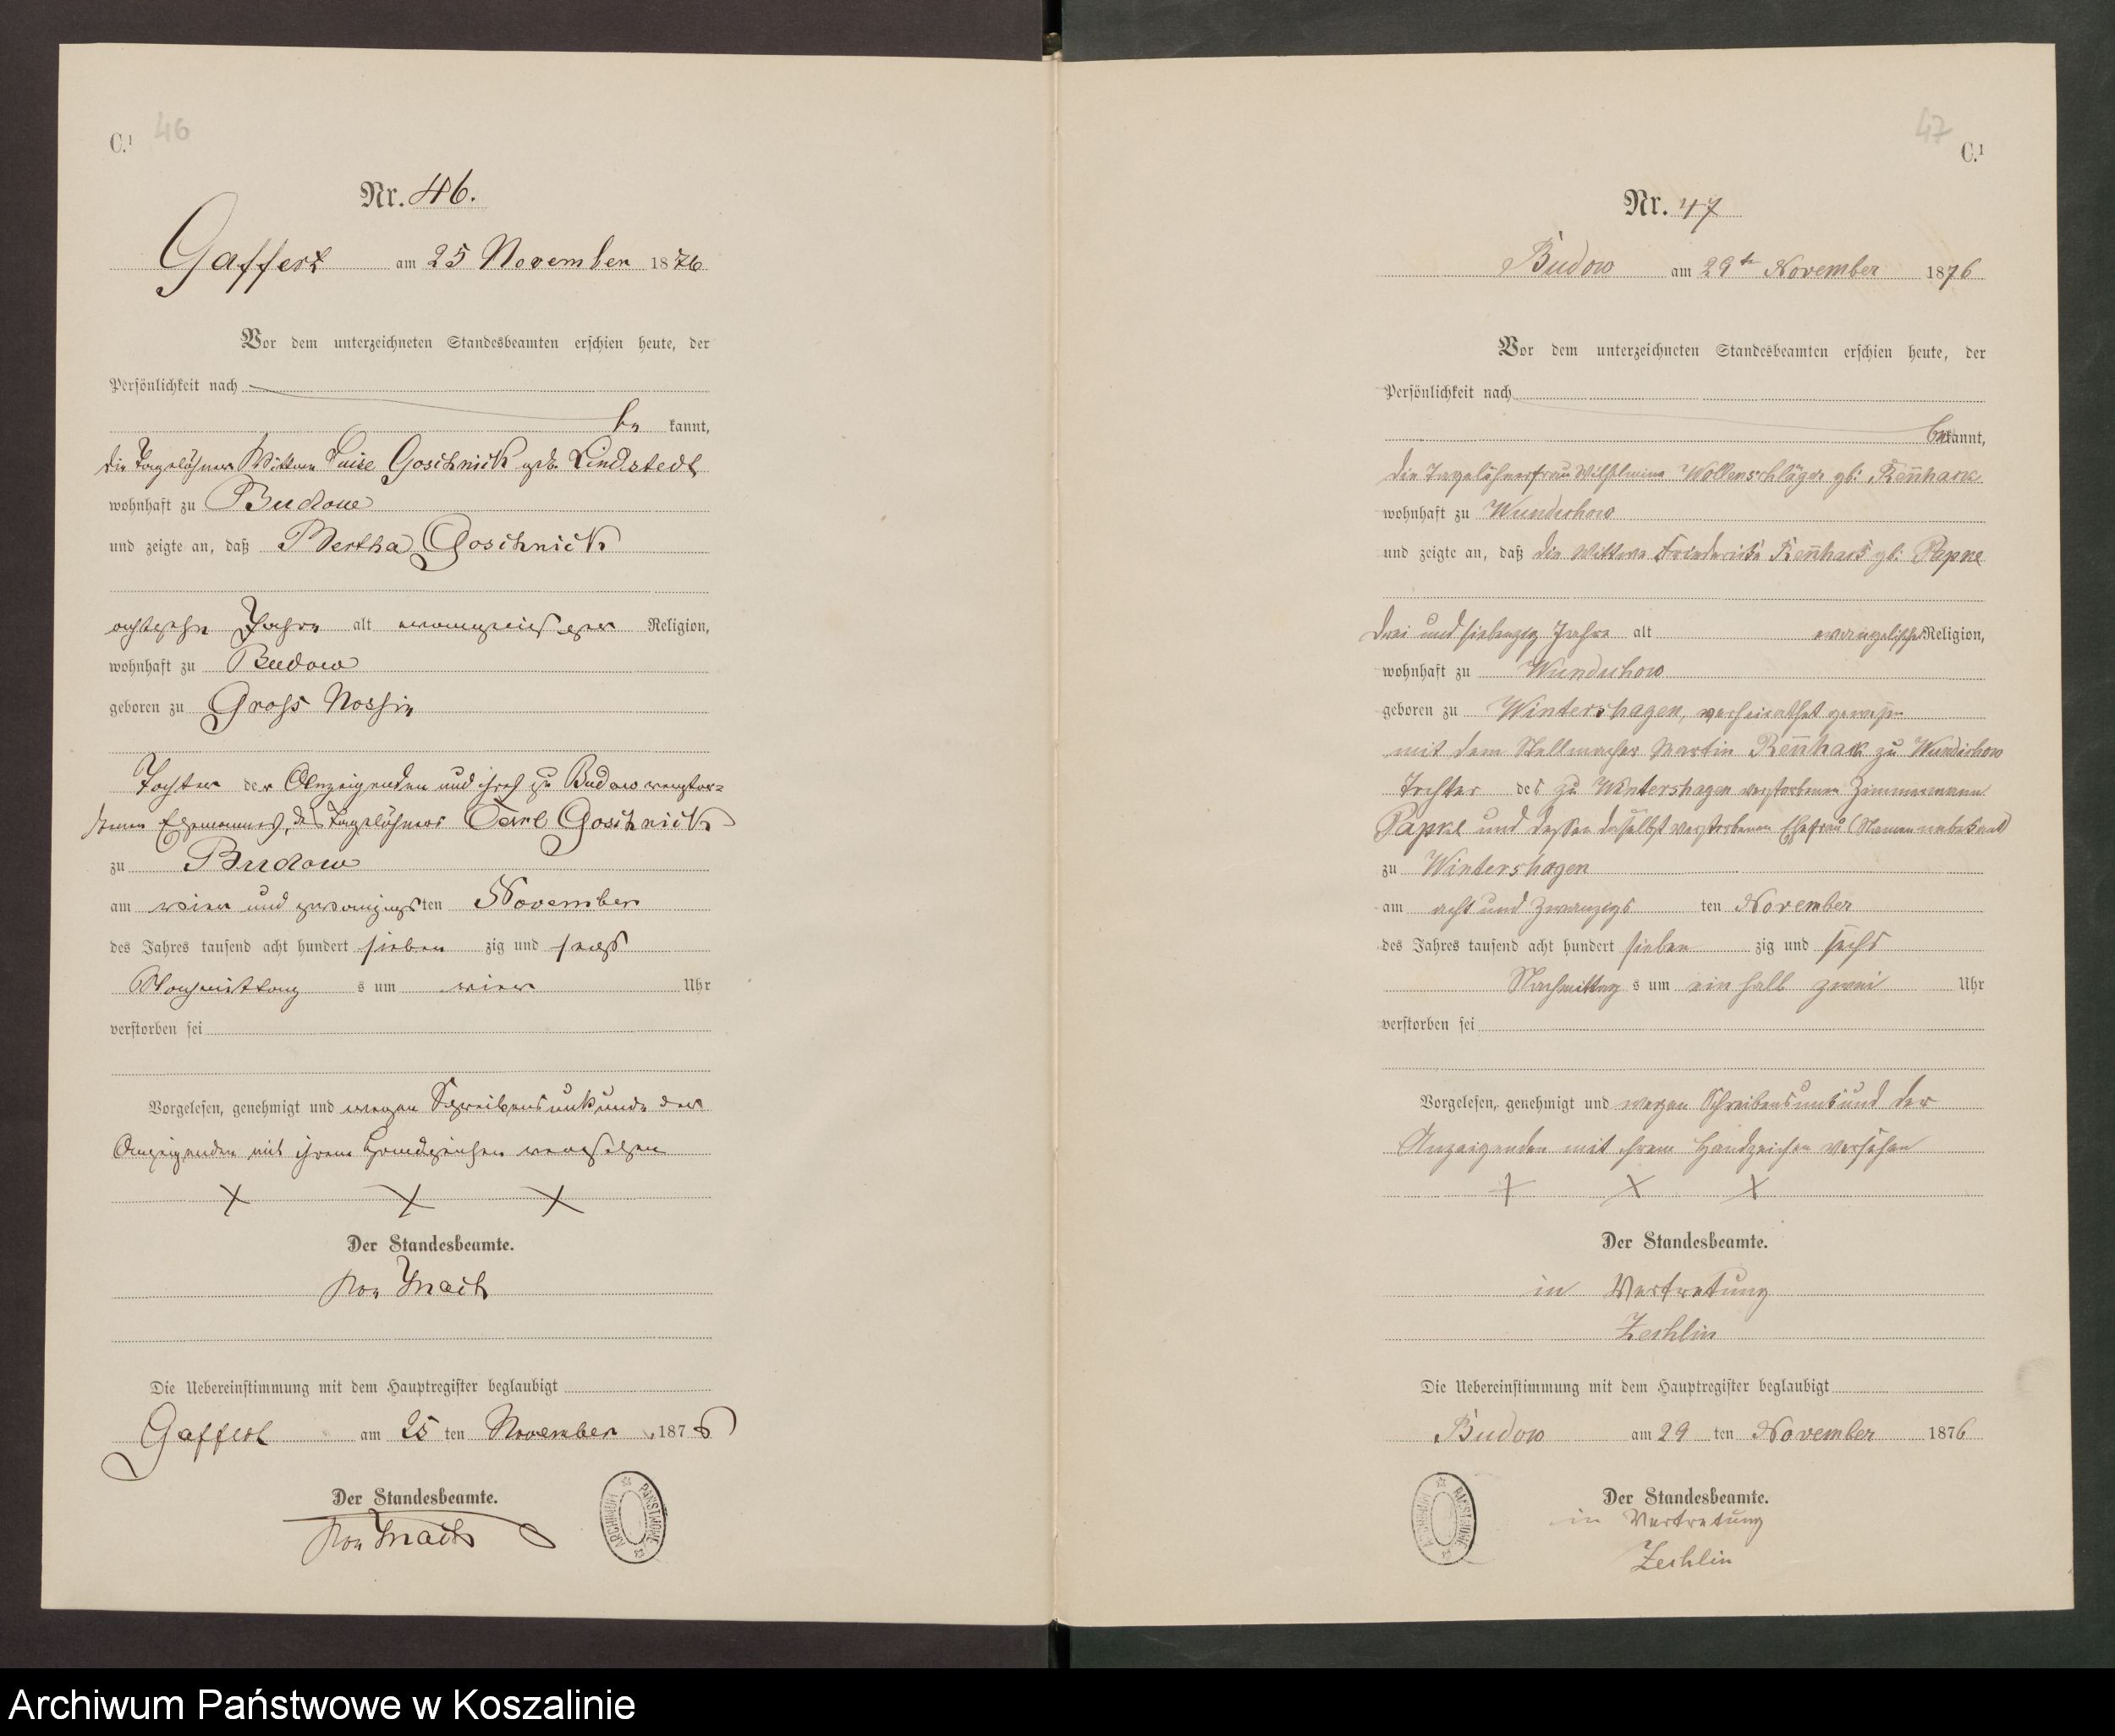 46
C.¹
Nr. 46.
Gaffert am 25 November 1876
Vor dem unterzeichneten Standesbeamten erschien heute, der
Persönlichkeit nach
be kannt,
die Tagelöhner Wittwe Luise Goschnick geb. Lindstedt
wohnhaft zu Budow
und zeigte an, daß Bertha Goschnick
achtzehn Jahre alt evangelischer Religion,
wohnhaft zu Budow
geboren zu Gross Nossin
Tochter der Anzeigenden und ihres zu Budow verstor-
benen Ehemannes, des Tagelöhners Carl Goschnick
zu Budow
am vier und zwanzigsten November
des Jahres tausend acht hundert sieben zig und sechs
Nachmittag s um vier Uhr
verstorben sei
Vorgelesen, genehmigt und wegen Schreibensunkunde der
Anzeigenden mit ihrem Handzeichen versehen
X X X
Der Standesbeamte.
von
Die Uebereinstimmung mit dem Hauptregister beglaubigt
Gaffert am 25 ten November 1876
Der Standesbeamte.
von
ARCHIWUM PAŃSTWOWE
47
C.¹
Nr. 47
Budow am 29t November 1876
Vor dem unterzeichneten Standesbeamten erschien heute, der
Persönlichkeit nach
bekannt,
die Tagelöhnerfrau Wilhelmine Wollenschläger gb: Rennhack
wohnhaft zu Wundichow
und zeigte an, daß die Wittwe Friederike Rennhack gb: Papke
drei und siebenzig Jahre alt evangelischer Religion,
wohnhaft zu Wundichow
geboren zu Wintershagen, verheirathet gewesen
mit dem Stellmacher Martin Rennhack zu Wundichow
Tochter des zu Wintershagen verstorbenen Zimmermann
Papke und dessen daselbst verstorbenen Ehefrau (Namen unbekant)
zu Wintershagen
am acht und zwanzigs ten November
des Jahres tausend acht hundert sieben zig und sechs
Nachmittag s um ein halb zwei Uhr
verstorben sei
Vorgelesen, genehmigt und wegen Schreibensunkund der
Anzeigenden mit ihrem Handzeichen versehen
X X X
Der Standesbeamte.
in Vertretung
Zechlin
Die Uebereinstimmung mit dem Hauptregister beglaubigt
Budow am 29 ten November 1876
Der Standesbeamte.
in Vertretung
Zechlin
ARCHIWUM PAŃSTWOWE
Archiwum Państwowe w Koszalinie